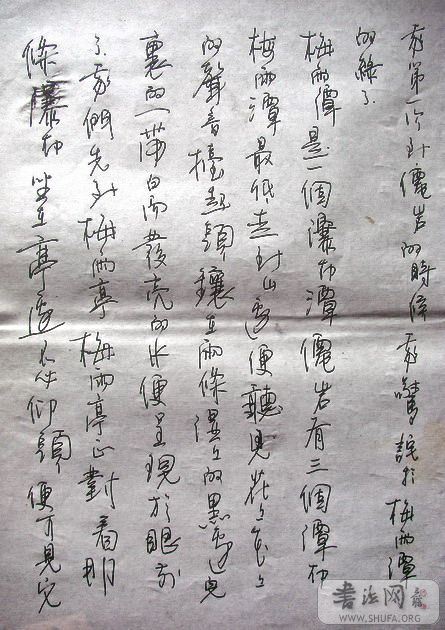 我第一次到僊岩的時候我驚詫於梅雨潭
的綠了
梅雨潭是一個瀑布潭僊岩有三個瀑布
梅雨潭最低走到山邊便聽見花々花々
的聲音擡起頭鑲在兩條濕々的黑邊兒
裏的一帶白而發亮的水便呈現於眼前
了我們先到梅雨亭梅雨亭正對着那
條瀑布坐在亭邊不必仰頭便可見它
书法网
WWW.SHUFA.ORG